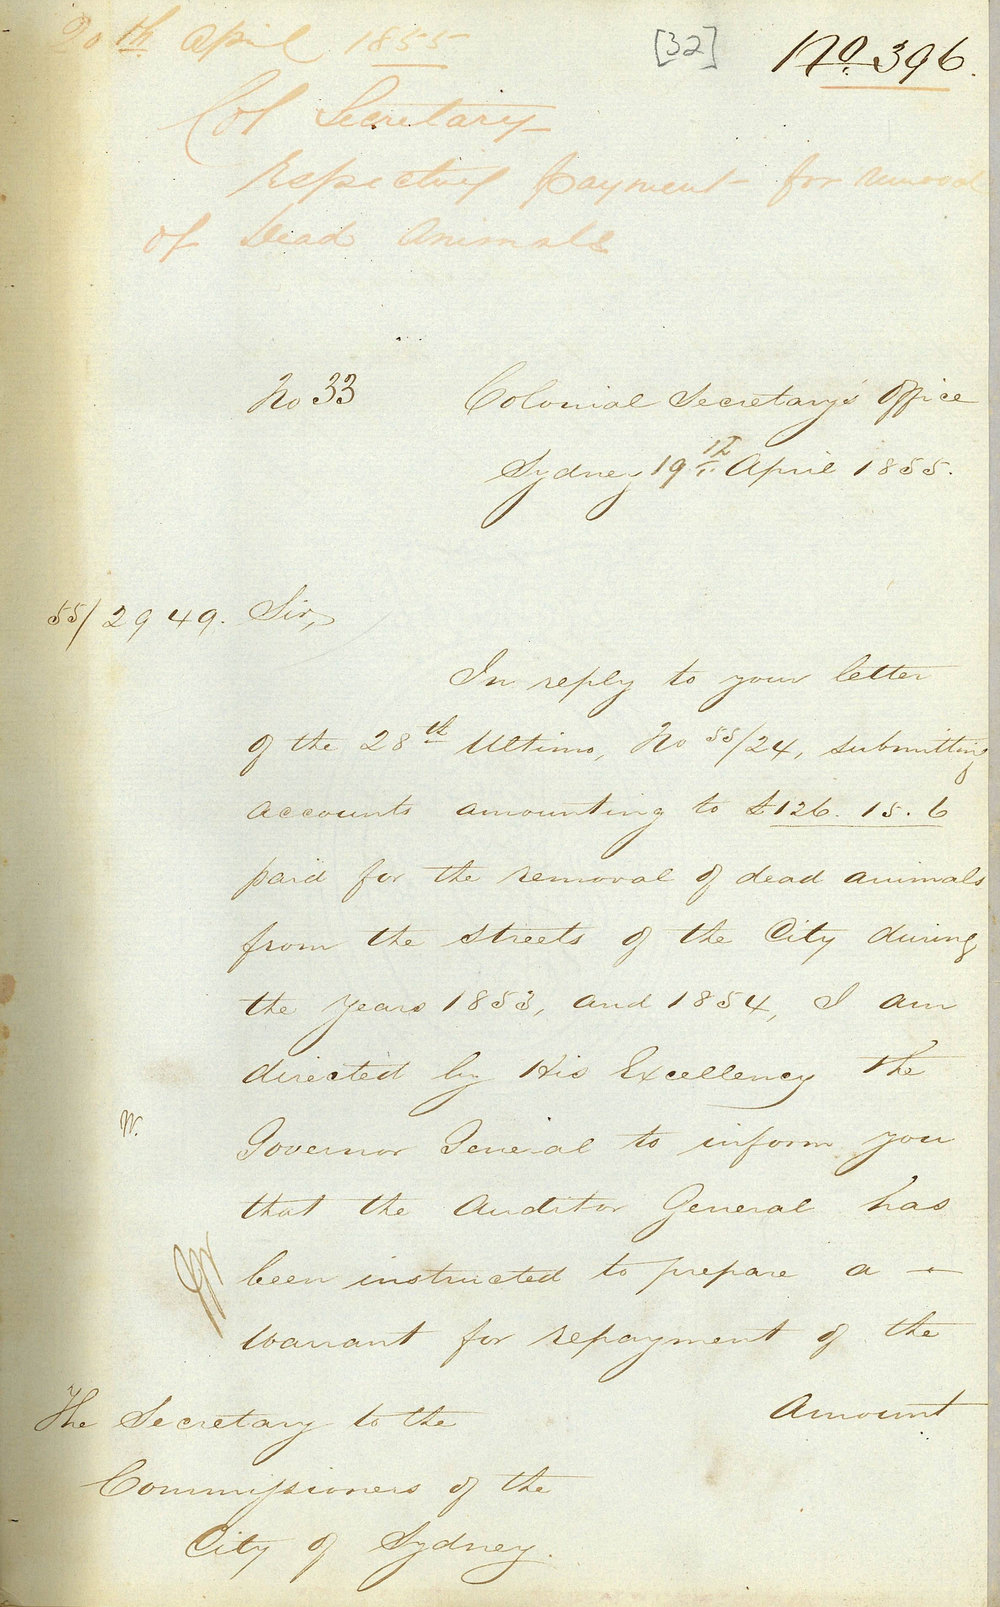 20th April 1855
[32]
No. 396.
Col Secretary
Respecting payment for removal
of Dead Animals
No 33
Colonial Secretary's Office
Sydney 19th April 1855.
55/2949. Sir,
In reply to your letter
of the 28th Ultimo, No 55/24, submitting
accounts amounting to £126. 15. 6
paid for the removal of dead animals
from the streets of the City during
the years 1853, and 1854, I am
directed by His Excellency the
Governor General to inform you
that the Auditor General has
been instructed to prepare a
warrant for repayment of the
Amount
The Secretary to the
Commissioners of the
City of Sydney.